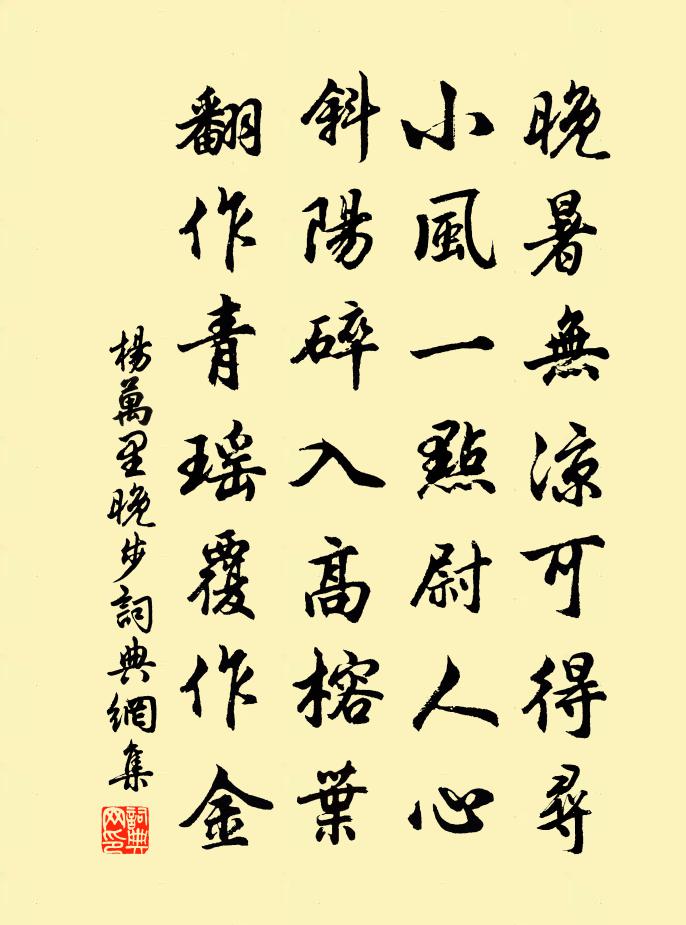 晚暑無涼可得尋
小風一點尉人心
斜陽碎入高榕葉
翻作青瑶覆作金
楊萬里晚步詞典網集
詞典網印